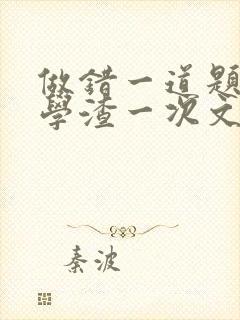 做錯一道題
學渣一次文
秦波